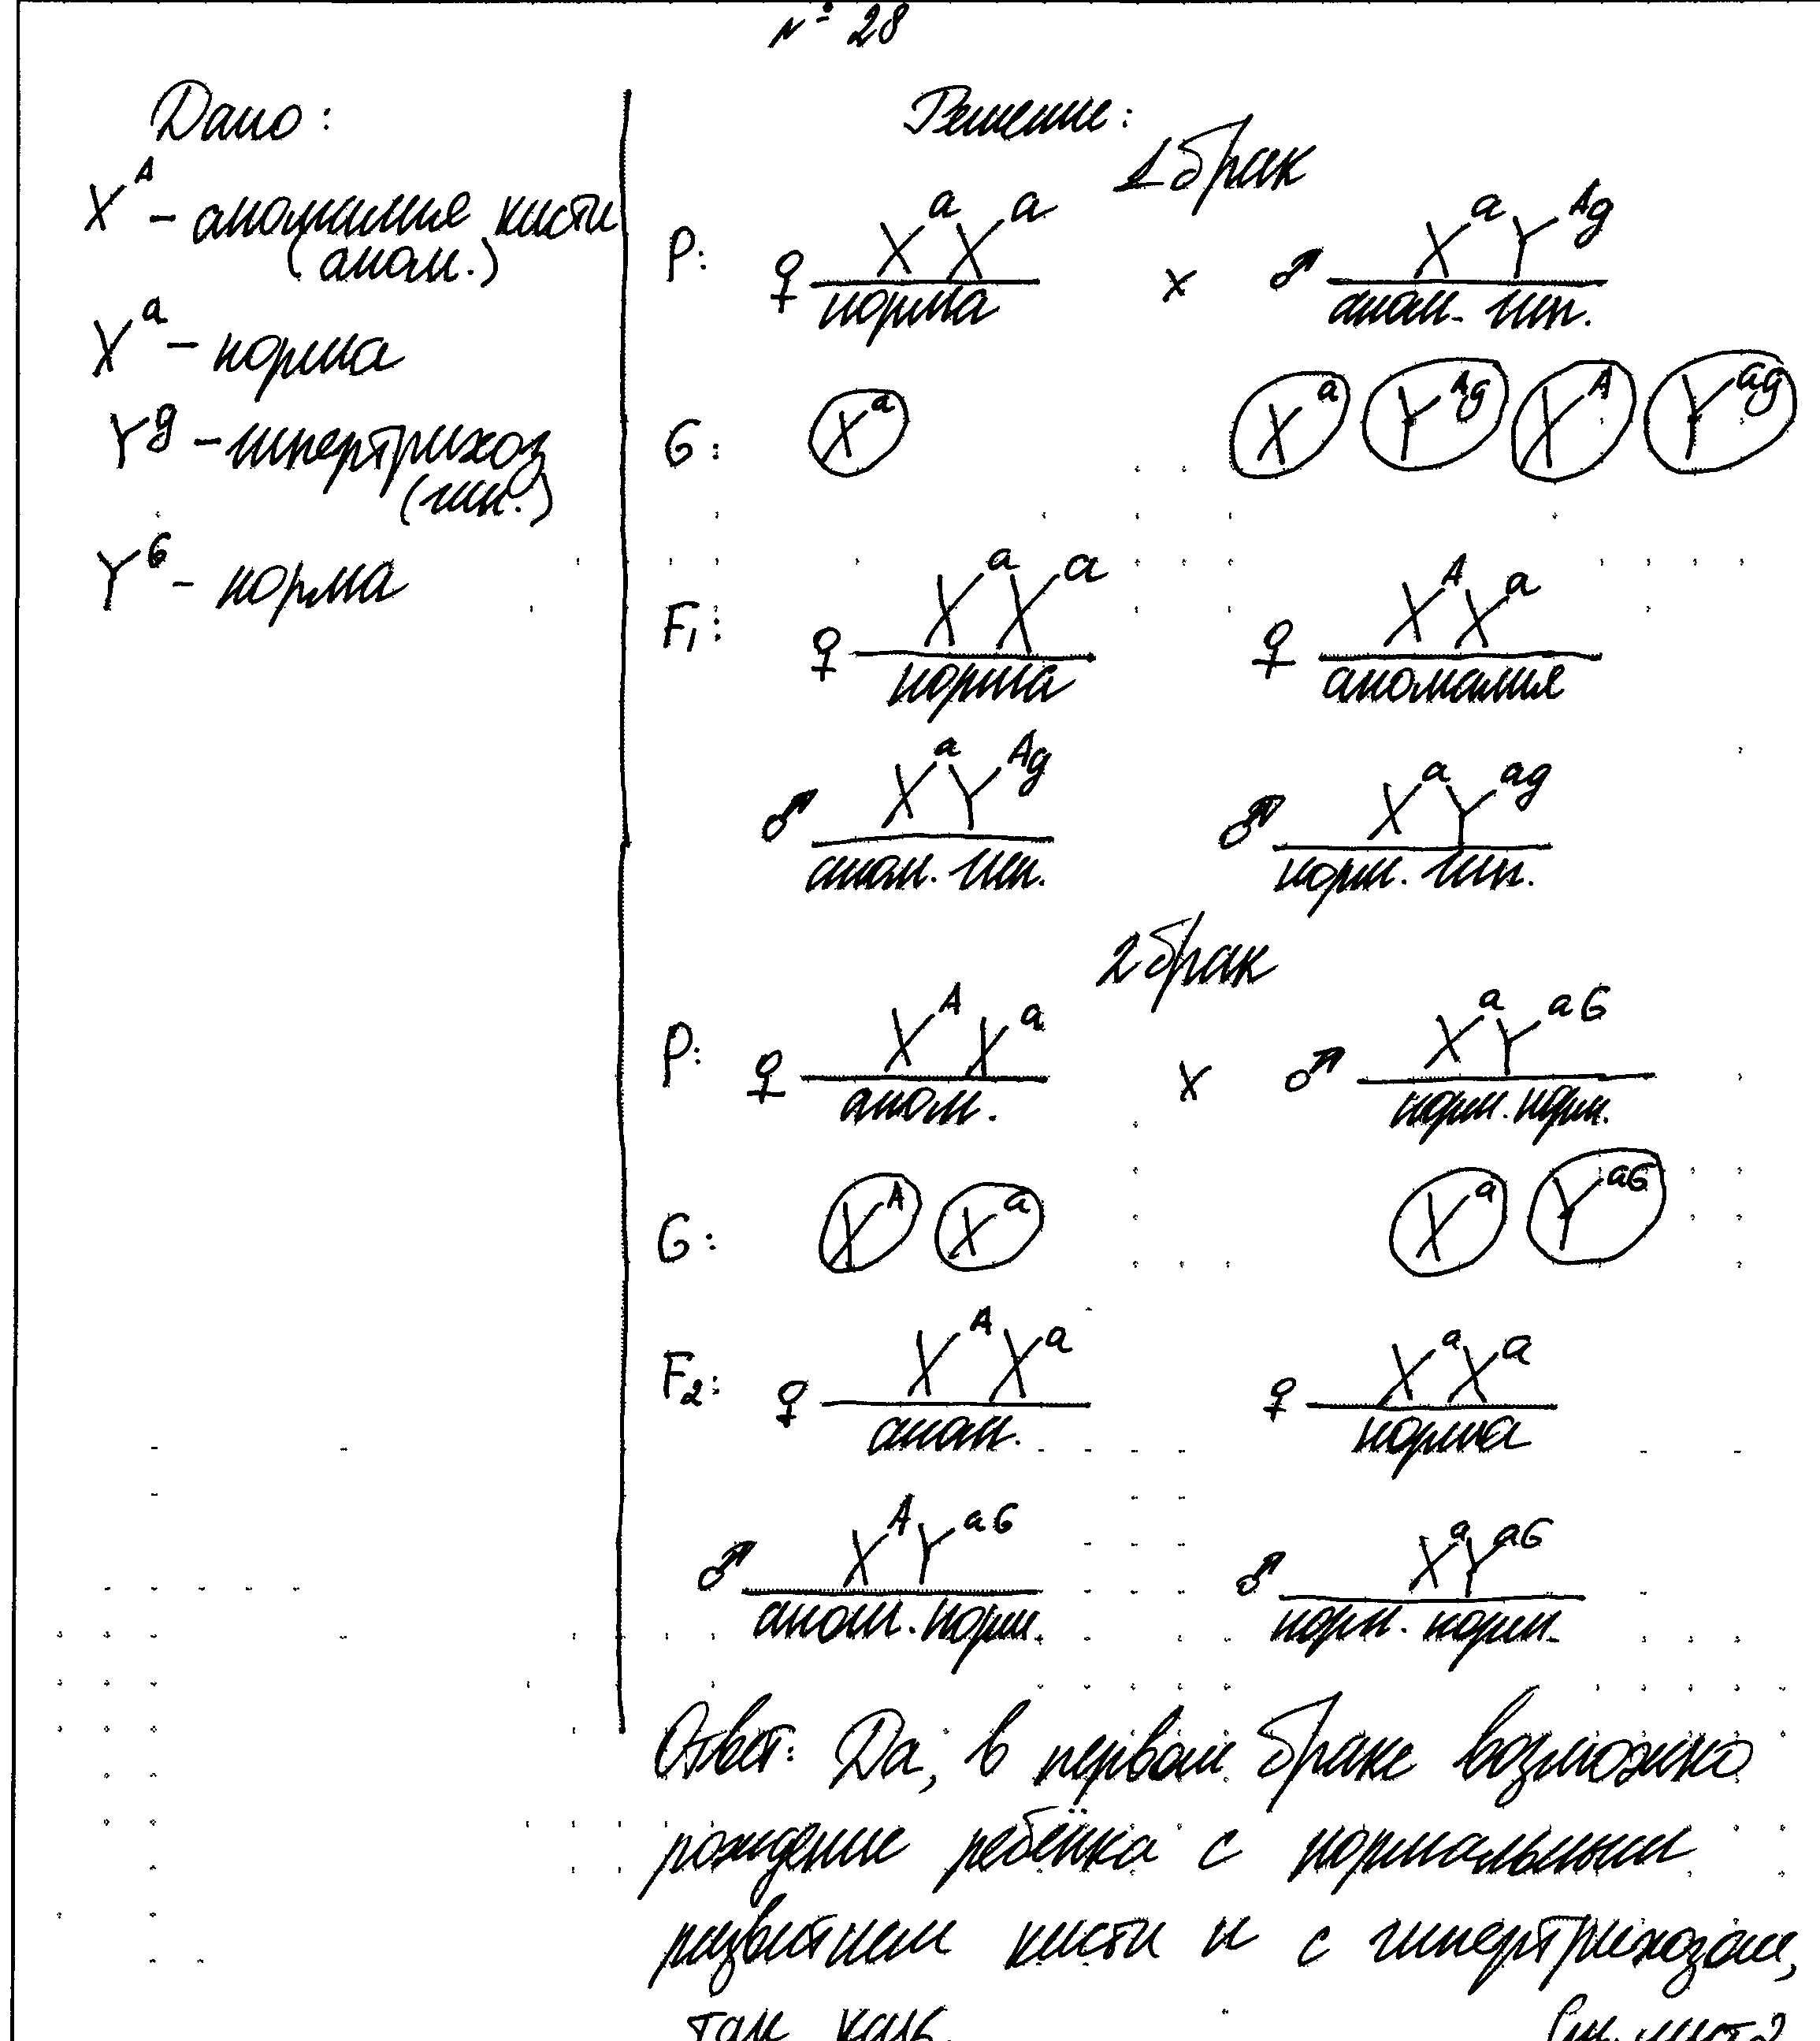 № 28
Дано:
X^A - аномалия кисти
(аном.)
X^a - норма
Y^g - гипертрихоз
(гип.)
Y^G - норма
Решение:
1 брак
P: ♀ X^a X^a x ♂ X^a Y^Ag
норма аном. гип.
G: X^a X^a Y^Ag X^A Y^ag
F1: ♀ X^a X^a ♀ X^A X^a
норма аномалия
♂ X^a Y^Ag ♂ X^a Y^ag
аном. гип. норм. гип.
2 брак
P: ♀ X^A X^a x ♂ X^a Y^aG
аном. норм. норм.
G: X^A X^a X^a Y^aG
F2: ♀ X^A X^a ♀ X^a X^a
аном. норма
♂ X^A Y^aG ♂ X^a Y^aG
аном. норм. норм. норм.
Ответ: Да, в первом браке возможно
рождение ребёнка с нормальным
развитием кисти и с гипертрихозом,
так как